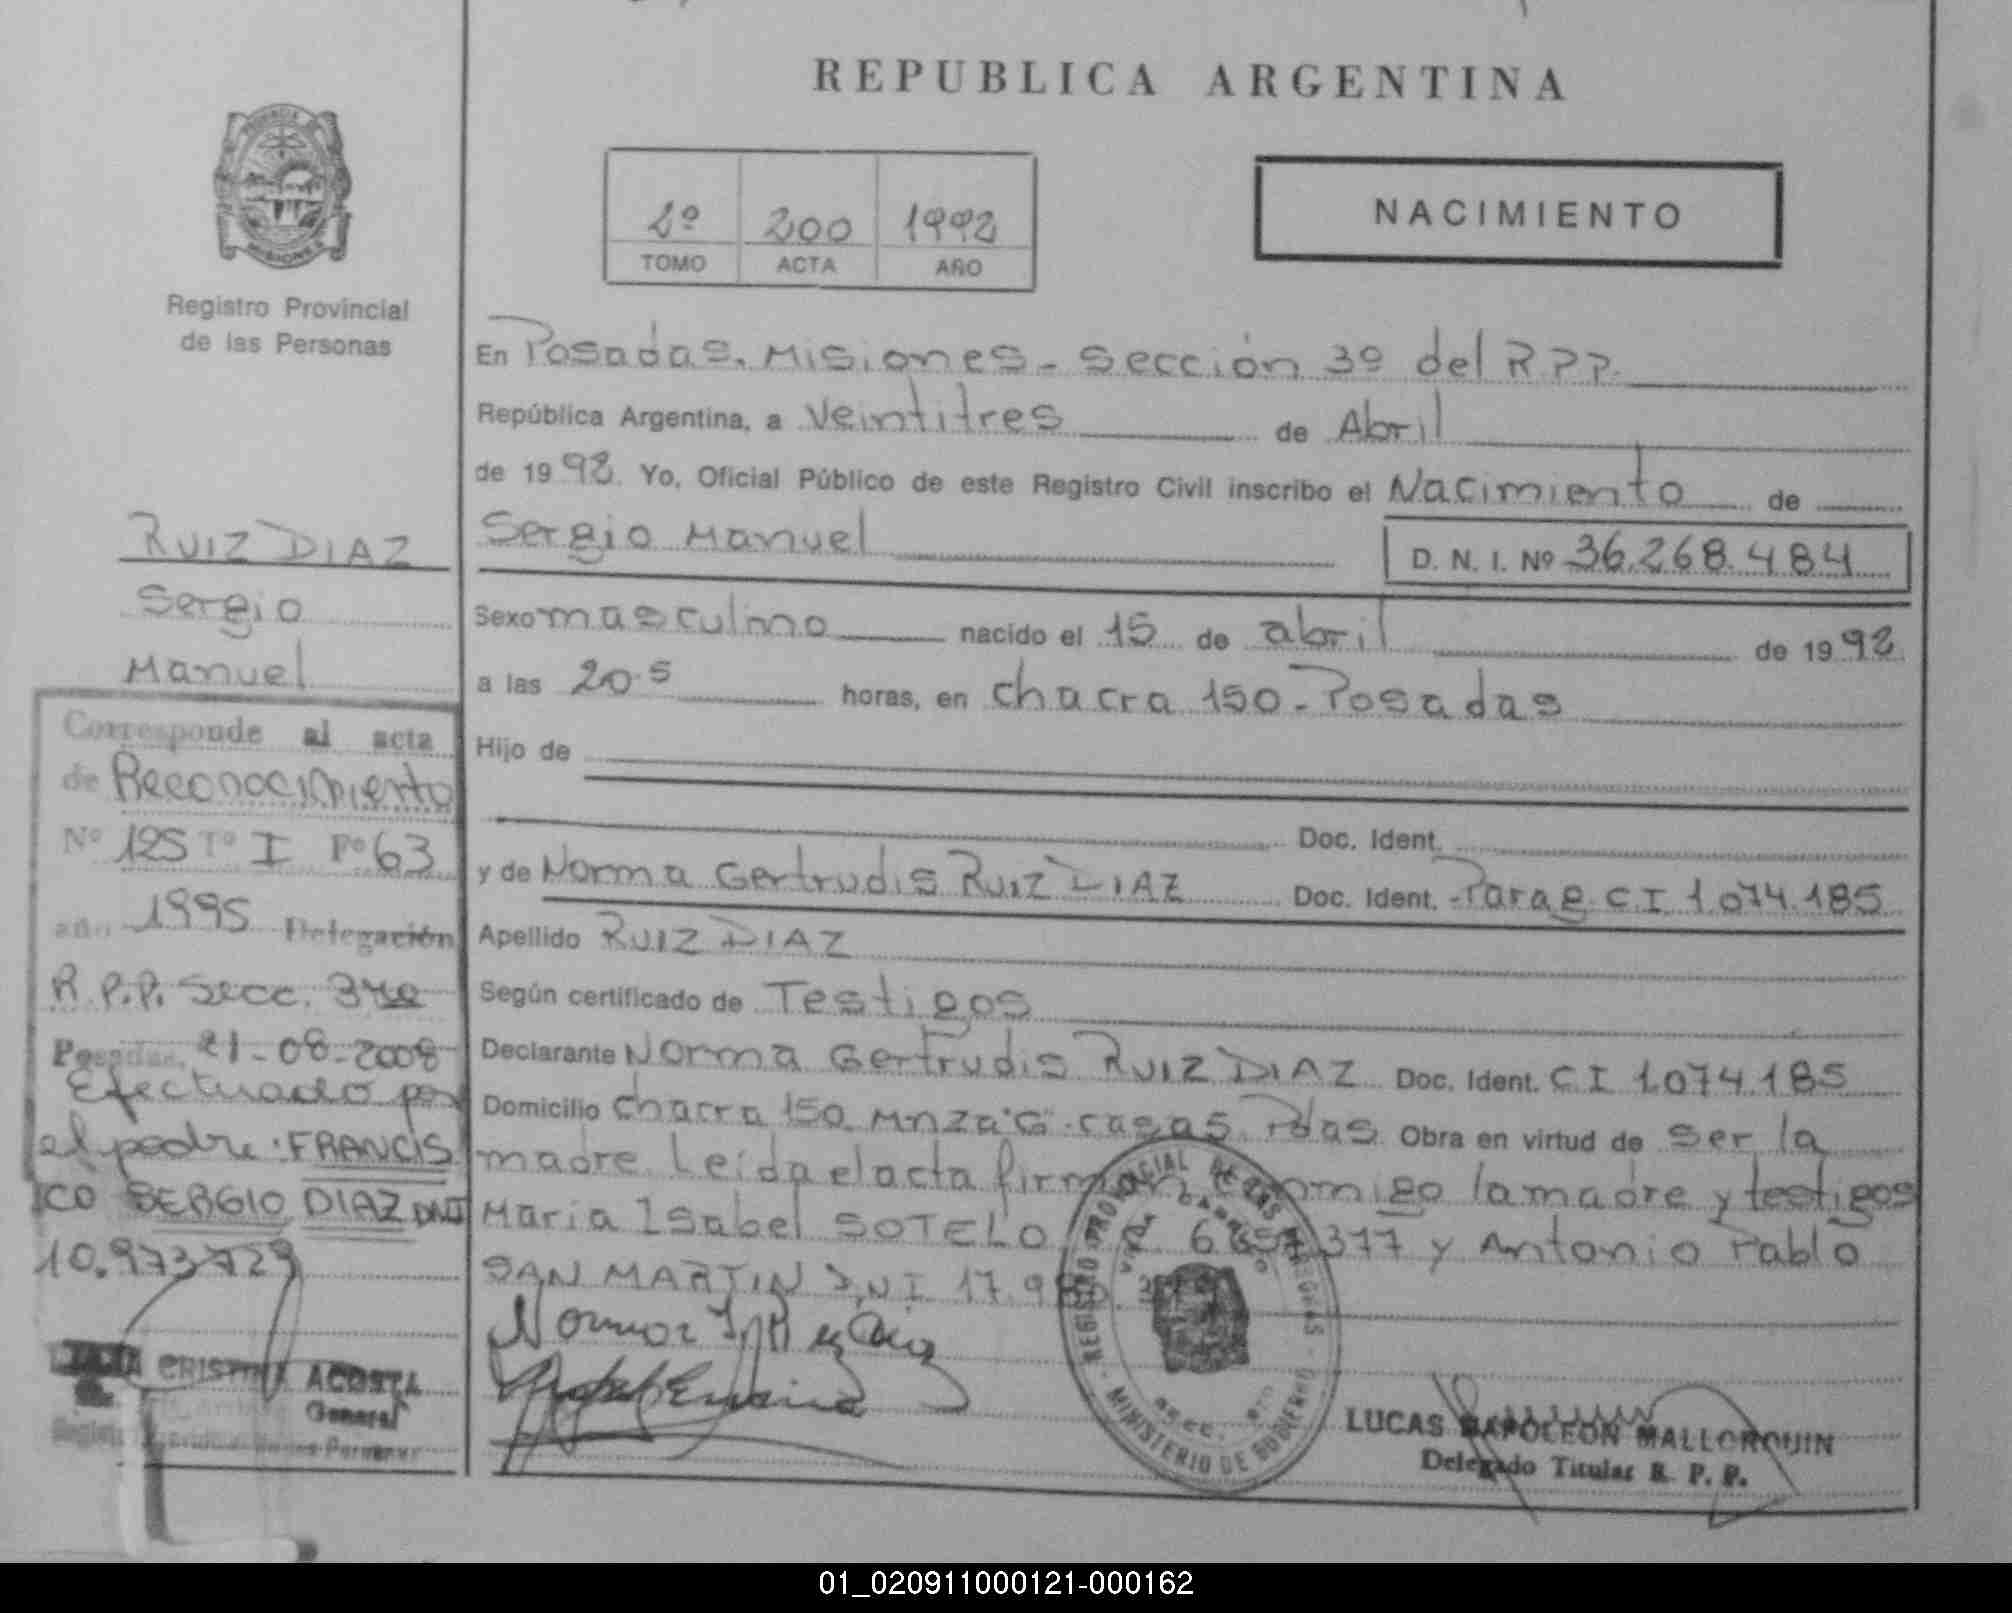 REPUBLICA ARGENTINA
NACIMIENTO
2º 200 1992
TOMO ACTA AÑO
Registro Provincial
de las Personas
RUIZ DIAZ
Sergio
Manuel
Corresponde al acta
de Reconocimiento
Nº 125 Tº I Fº 63
año 1995 Delegación
R.P.P. Secc. 3ra
Posadas, 21-08-2008
Efectuado por
el padre: FRANCIS
CO SERGIO DIAZ DNI
10.973729
CRISTINA ACOSTA
General
En Posadas. Misiones - Sección 3º del R.P.P.
República Argentina, a Veintitres de Abril
de 1992. Yo, Oficial Público de este Registro Civil inscribo el Nacimiento de
Sergio Manuel D. N. I. Nº 36.268.484
Sexo masculino nacido el 15 de abril de 1992
a las 20.5 horas, en chacra 150 - Posadas
Hijo de
Doc. Ident.
y de Norma Gertrudis RUIZ DIAZ Doc. Ident. Parag. C.I 1.074.185
Apellido RUIZ DIAZ
Según certificado de Testigos
Declarante Norma Gertrudis RUIZ DIAZ Doc. Ident. C I 1.074.185
Domicilio chacra 150 Mnza "G" casa 5 Pdas. Obra en virtud de ser la
madre. Leída el acta firman conmigo la madre y testigos
Maria Isabel SOTELO 377 y Antonio Pablo
SAN MARTIN D.N.I 17.9
REGISTRO PROVINCIAL DE LAS PERSONAS - MINISTERIO DE GOBIERNO
LUCAS NAPOLEON MALLORQUIN
Delegado Titular R. P. P.
01_020911000121-000162